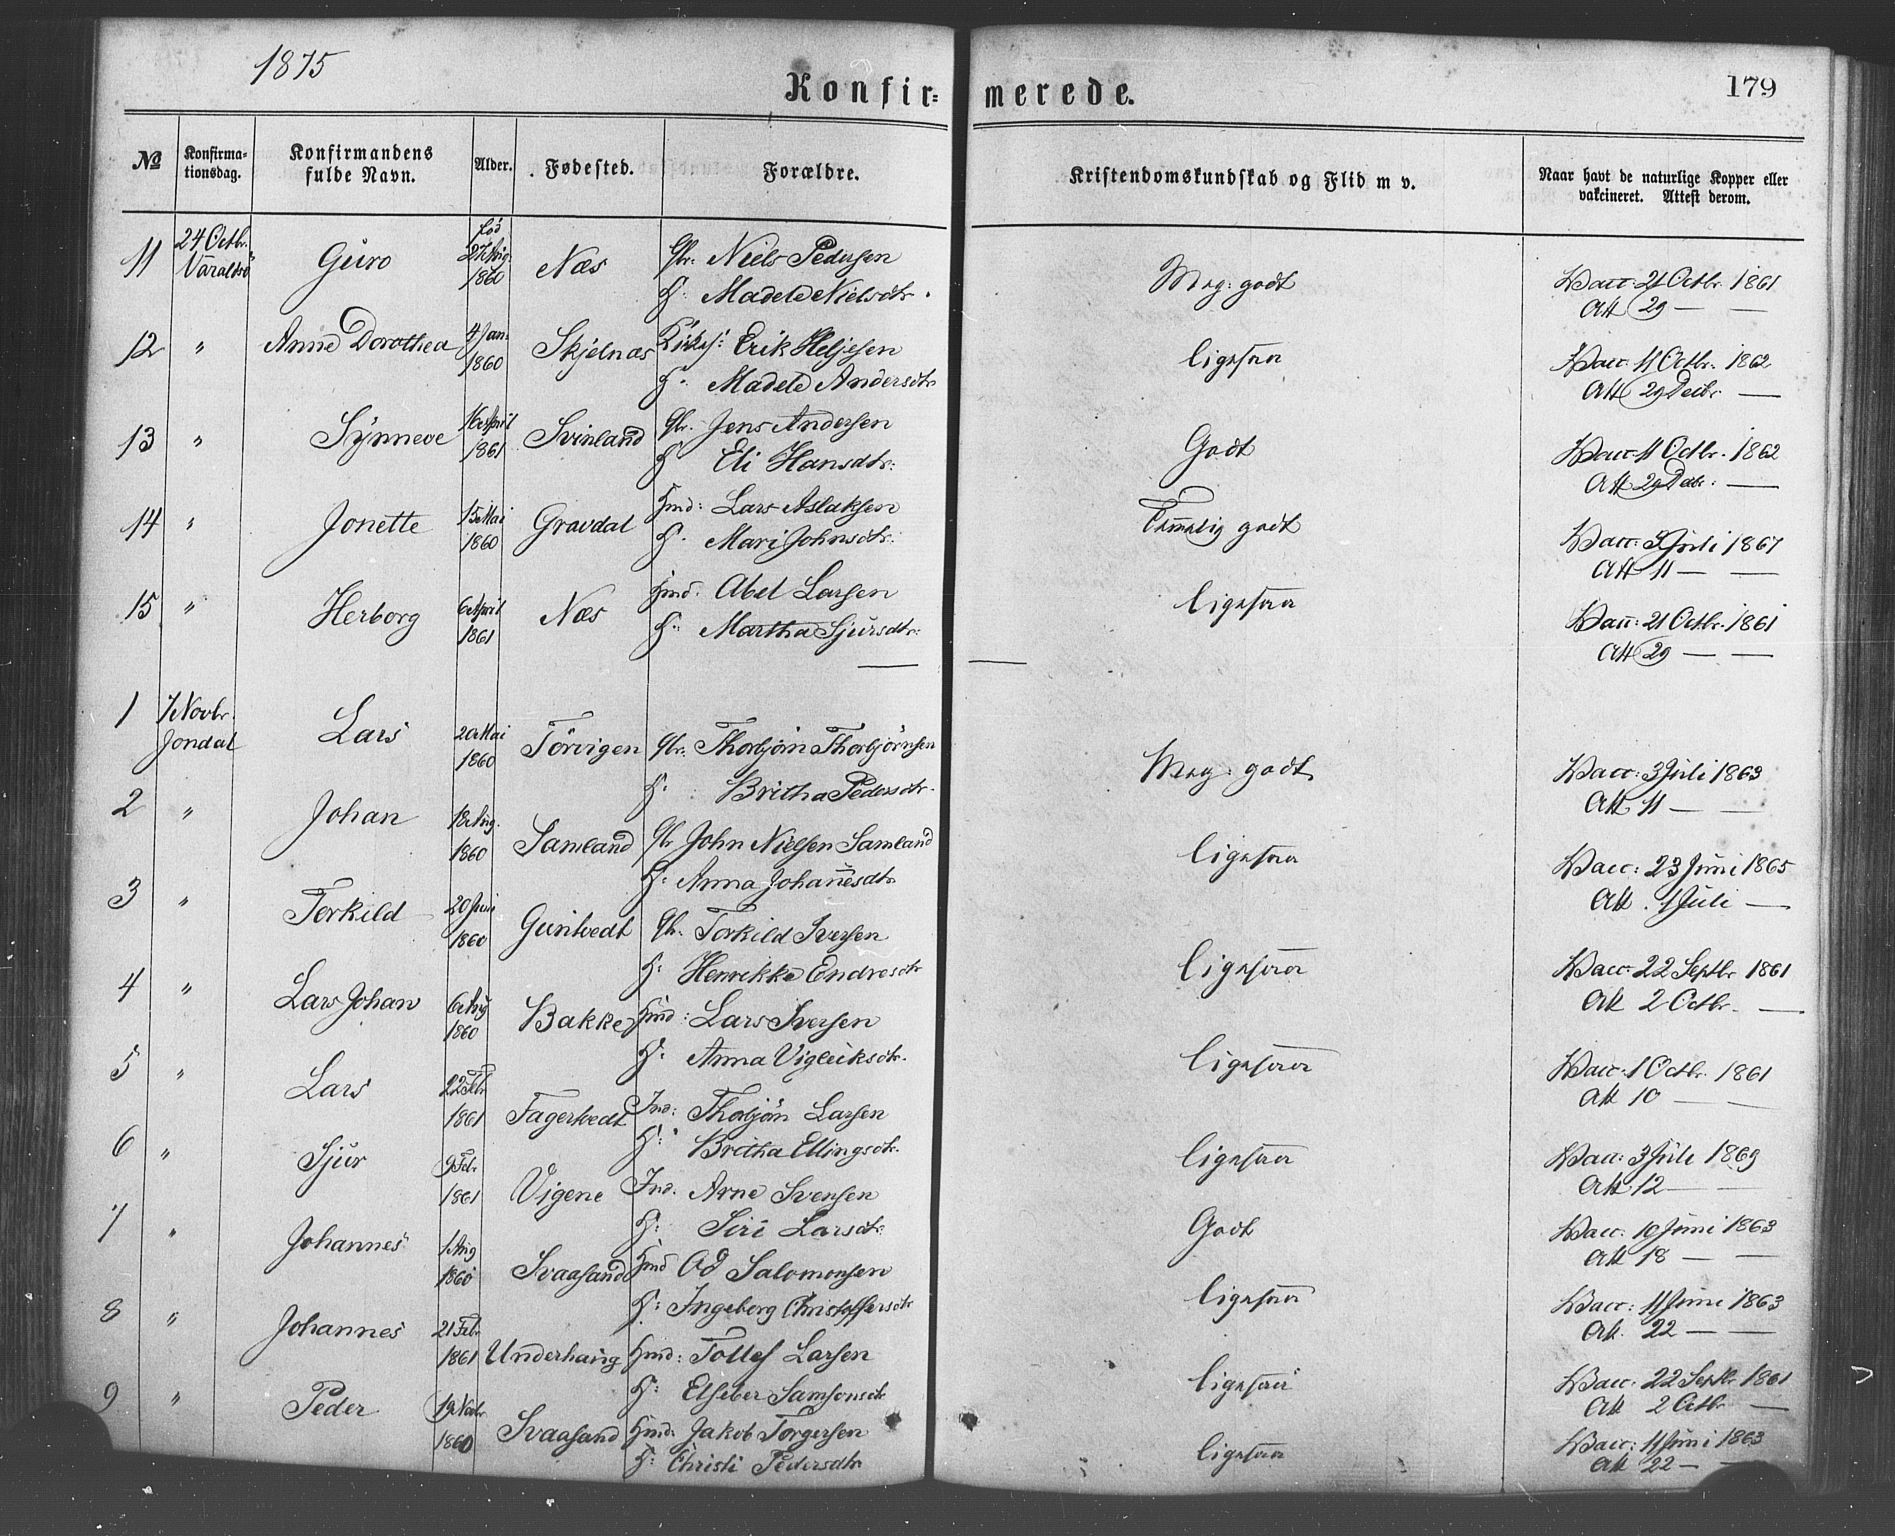 1875
Konfirmerede.
179
No
Konfirma-
tionsdag.
Konfirmandens
fulde Navn.
Alder.
Fødested.
Forældre.
Kristendomskundskab og Flid m v.
Naar havt de naturlige Kopper eller
vakcineret. Attest derom.
11 24 Octbr. Varaldsö Guro fød 27 Aug. 1860 Næs Gbr. Niels Pedersen
H: Madele Nielsdtr. Meg: godt Vacc: 21 Octbr. 1861
Att 29 — —
12 " Anne Dorothea 4 Jan: 1860 Skjelnæs Erik Heljesen
H: Madele Andersdtr. Ligesaa Vacc: 11 Octbr. 1862
Att 29 Decbr. —
13 " Synneve 16 April 1861 Svinland Gbr. Jens Andersen
H Eli Hansdtr: Godt Vacc 11 Octbr. 1862
Att 29 Decbr: —
14 " Jonette 15 Mai 1860 Gravdal Hmd: Lars Aslaksen
H. Mari Johnsdtr. Temmelig godt Vacc: 3 Juli 1867
Att 11 — —
15 " Herborg 6 April 1861 Næs Hmd. Abel Larsen
H: Martha Sjursdtr. Ligesaa Vacc: 21 Octbr. 1861
Att 29 — —
1 7 Novbr. Jondal Lars 20 Mai 1860 Törvigen Gbr. Thorbjörn Thorbjörnsen
H: Britha Pedersdtr. Meg: godt Vacc: 3 Juli 1863
Att 11 — —
2 " Johan 18 Aug. 1860 Samland Gbr John Nielsen Samland
H: Anna Johannesdtr. Ligesaa Vacc: 23 Juni 1865
Att. 1 Juli —
3 " Torkild 20 Juni 1860 Guntvedt Gbr. Torkild Iversen
H: Henrikka Endresdtr Ligesaa Vacc: 22 Septbr 1861
Att 2 Octbr. —
4 " Lars Johan 6 Aug 1860 Bakke Hmd: Lars Iversen
H: Anna Vigleiksdtr. Ligesaa Vacc: 1 Octbr. 1861
Att 10 — —
5 " Lars 22 Febr 1861 Fagertvedt Ind: Thorbjörn Larsen
H: Britha Ellingsdtr. Ligesaa Vacc: 3 Juli 1869
Att 12 — —
6 " Sjur 9 Febr 1861 Vigene Ind. Arne Svensen
H: Siri Larsdtr. Godt Vacc: 10 Juni 1863
Att 18 — —
7 " Johannes 1 Aug 1860 Svaasand Hmd Od Salomonsen
H: Ingeborg Christoffersdtr Ligesaa Vacc: 11 Juni 1863
Att. 22 — —
8 " Johannes 21 Febr 1861 Underhaug Hmd: Tollef Larsen
H: Elseber Samsonsdtr Ligesaa Vacc: 22 Septbr 1861
Att 2 Octbr —
9 " Peder 19 Novbr 1860 Svaasand Hmd. Jakob Torgersen
H: Christi Pedersdtr. Ligesaa Vacc: 11 Juni 1863
Att 22 — —